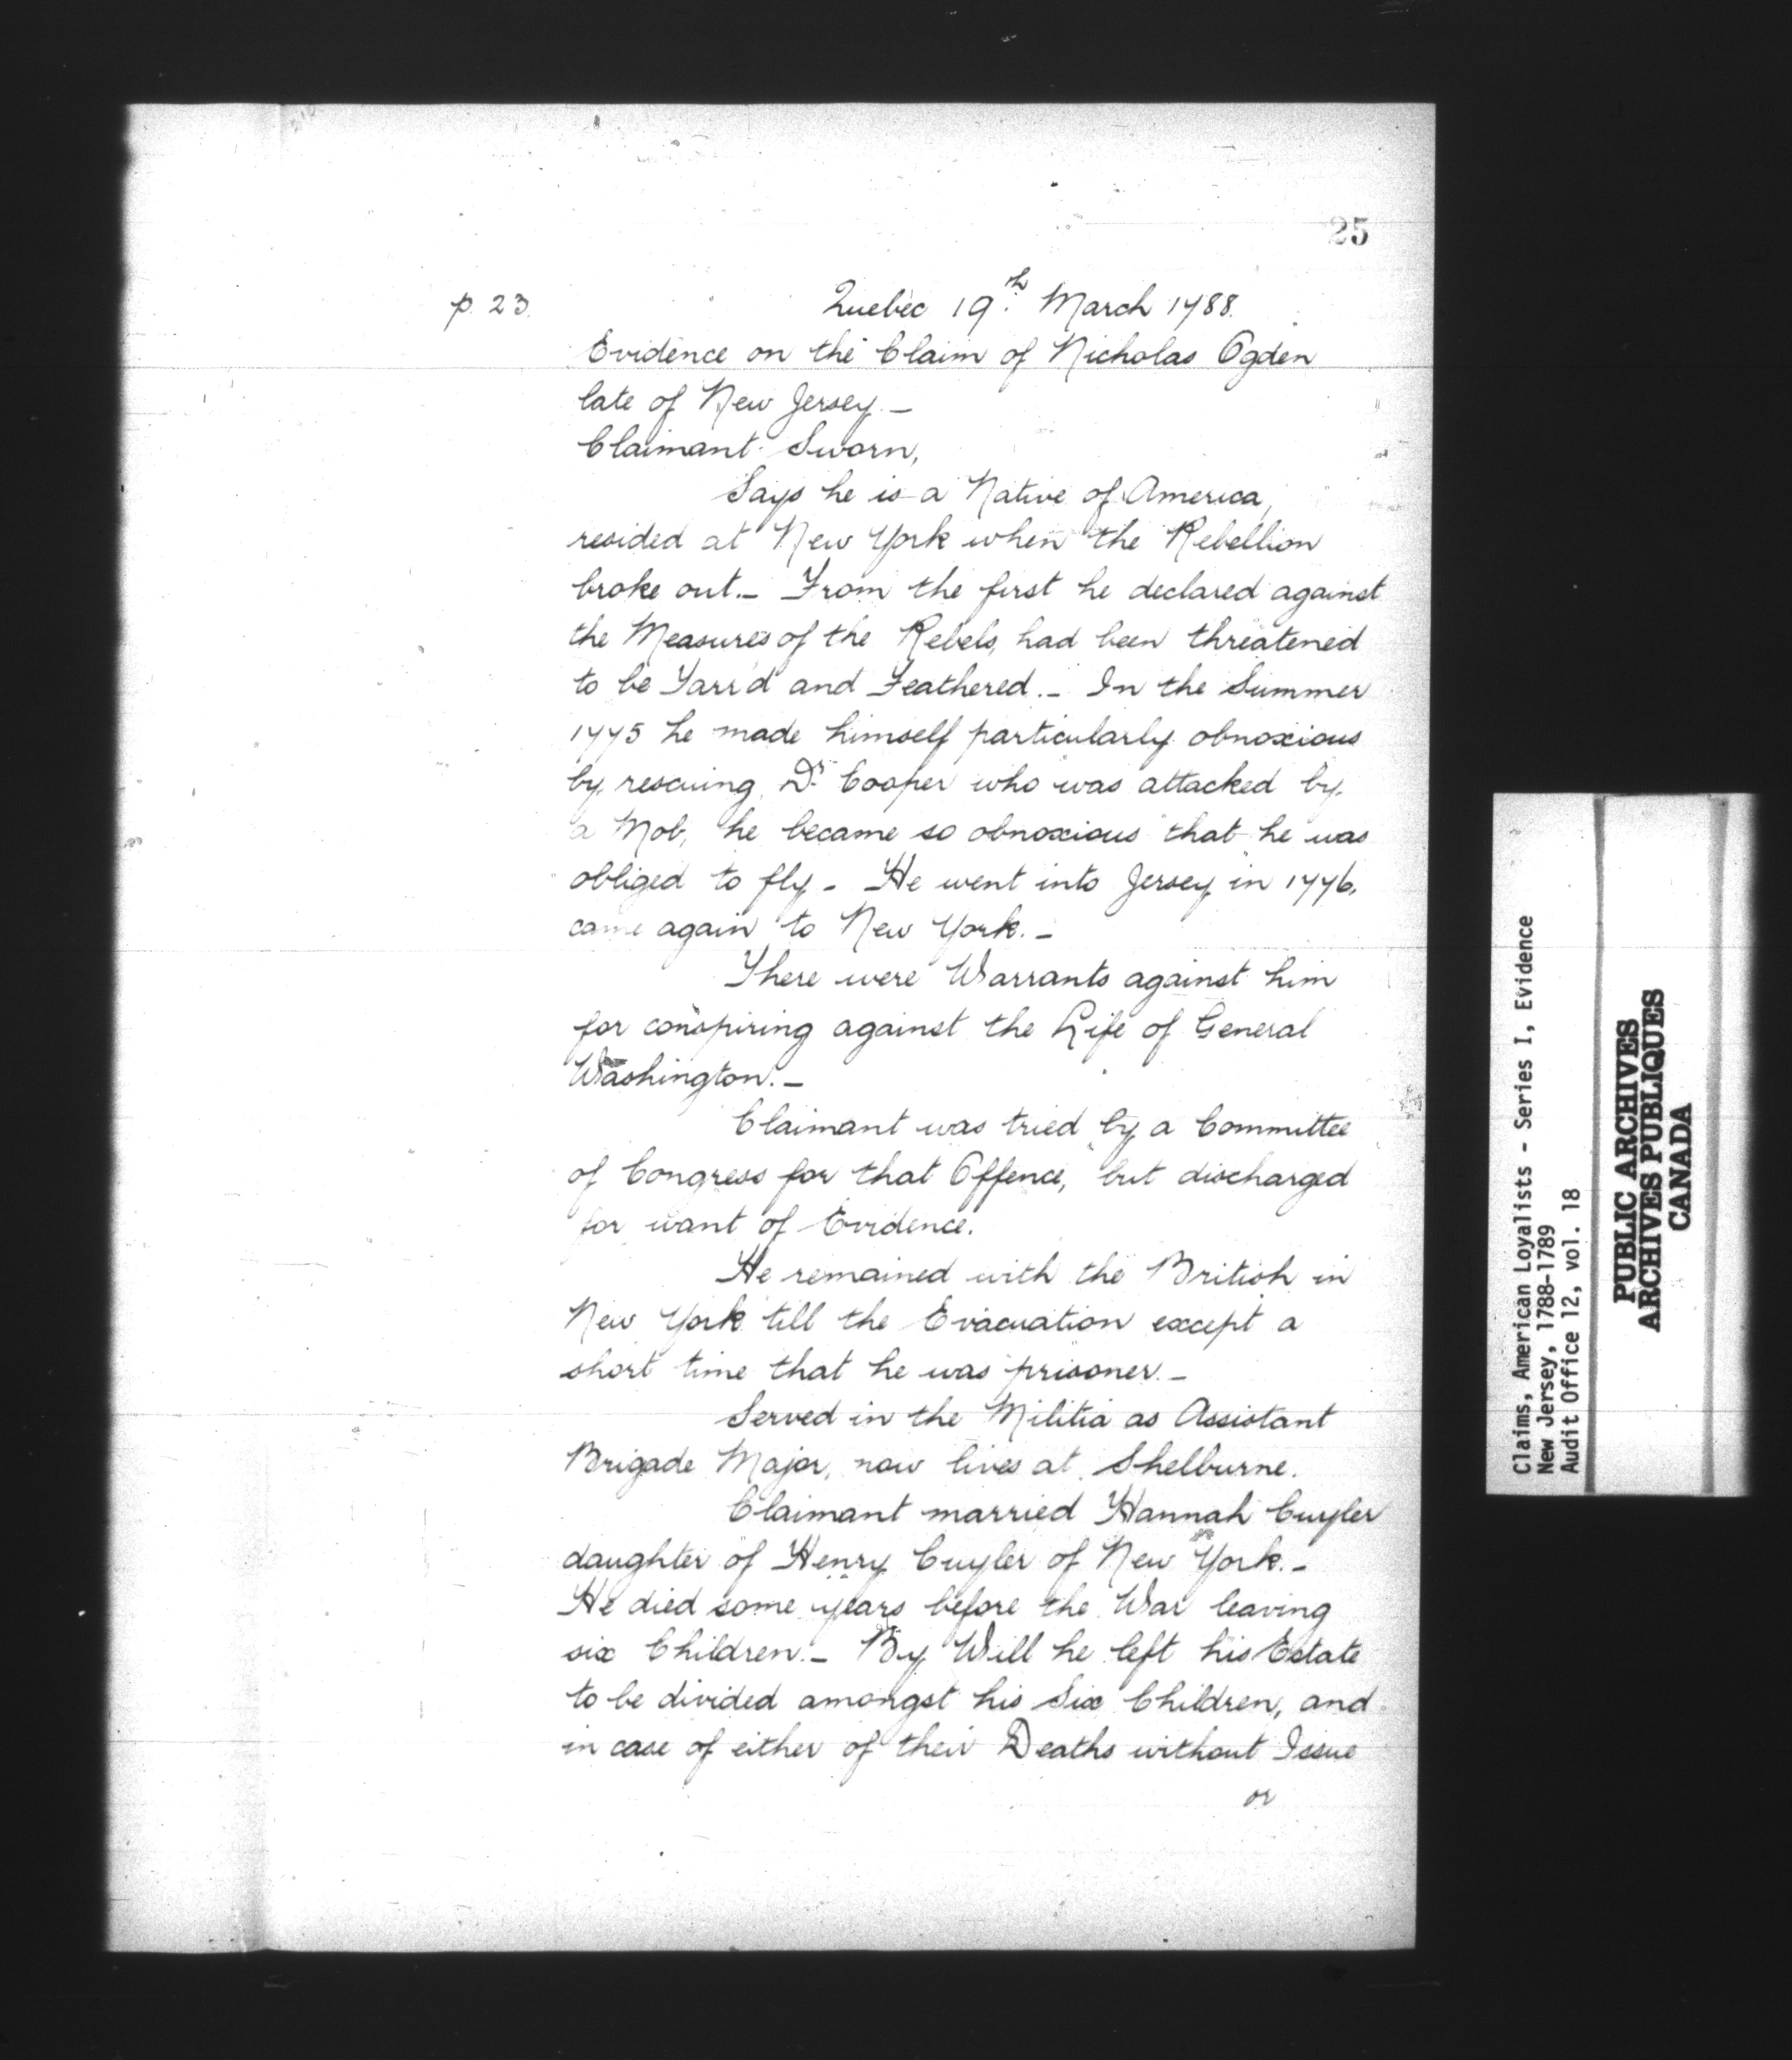 25
p. 23. Quebec 19th March 1788.
Evidence on the Claim of Nicholas Ogden
late of New Jersey. –
Claimant Sworn,
Says he is a Native of America,
resided at New York when the Rebellion
broke out. – From the first he declared against
the Measures of the Rebels, had been threatened
to be Tarr'd and Feathered. – In the Summer
1775 he made himself particularly obnoxious
by rescuing Dr. Cooper who was attacked by
a Mob, he became so obnoxious that he was
obliged to fly – He went into Jersey in 1776,
came again to New York. –
There were Warrants against him
for conspiring against the Life of General
Washington. –
Claimant was tried by a Committee
of Congress for that Offence, but discharged
for want of Evidence.
He remained with the British in
New York till the Evacuation except a
short time that he was prisoner. –
Served in the Militia as Assistant
Brigade Major, now lives at Shelburne.
Claimant married Hannah Cuyler
daughter of Henry Cuyler of New York. –
He died some years before the War leaving
six Children. – By Will he left his Estate
to be divided amongst his Six Children, and
in case of either of their Deaths without Issue
or
Claims, American Loyalists - Series I, Evidence
New Jersey, 1788-1789
Audit Office 12, vol. 18
PUBLIC ARCHIVES
ARCHIVES PUBLIQUES
CANADA